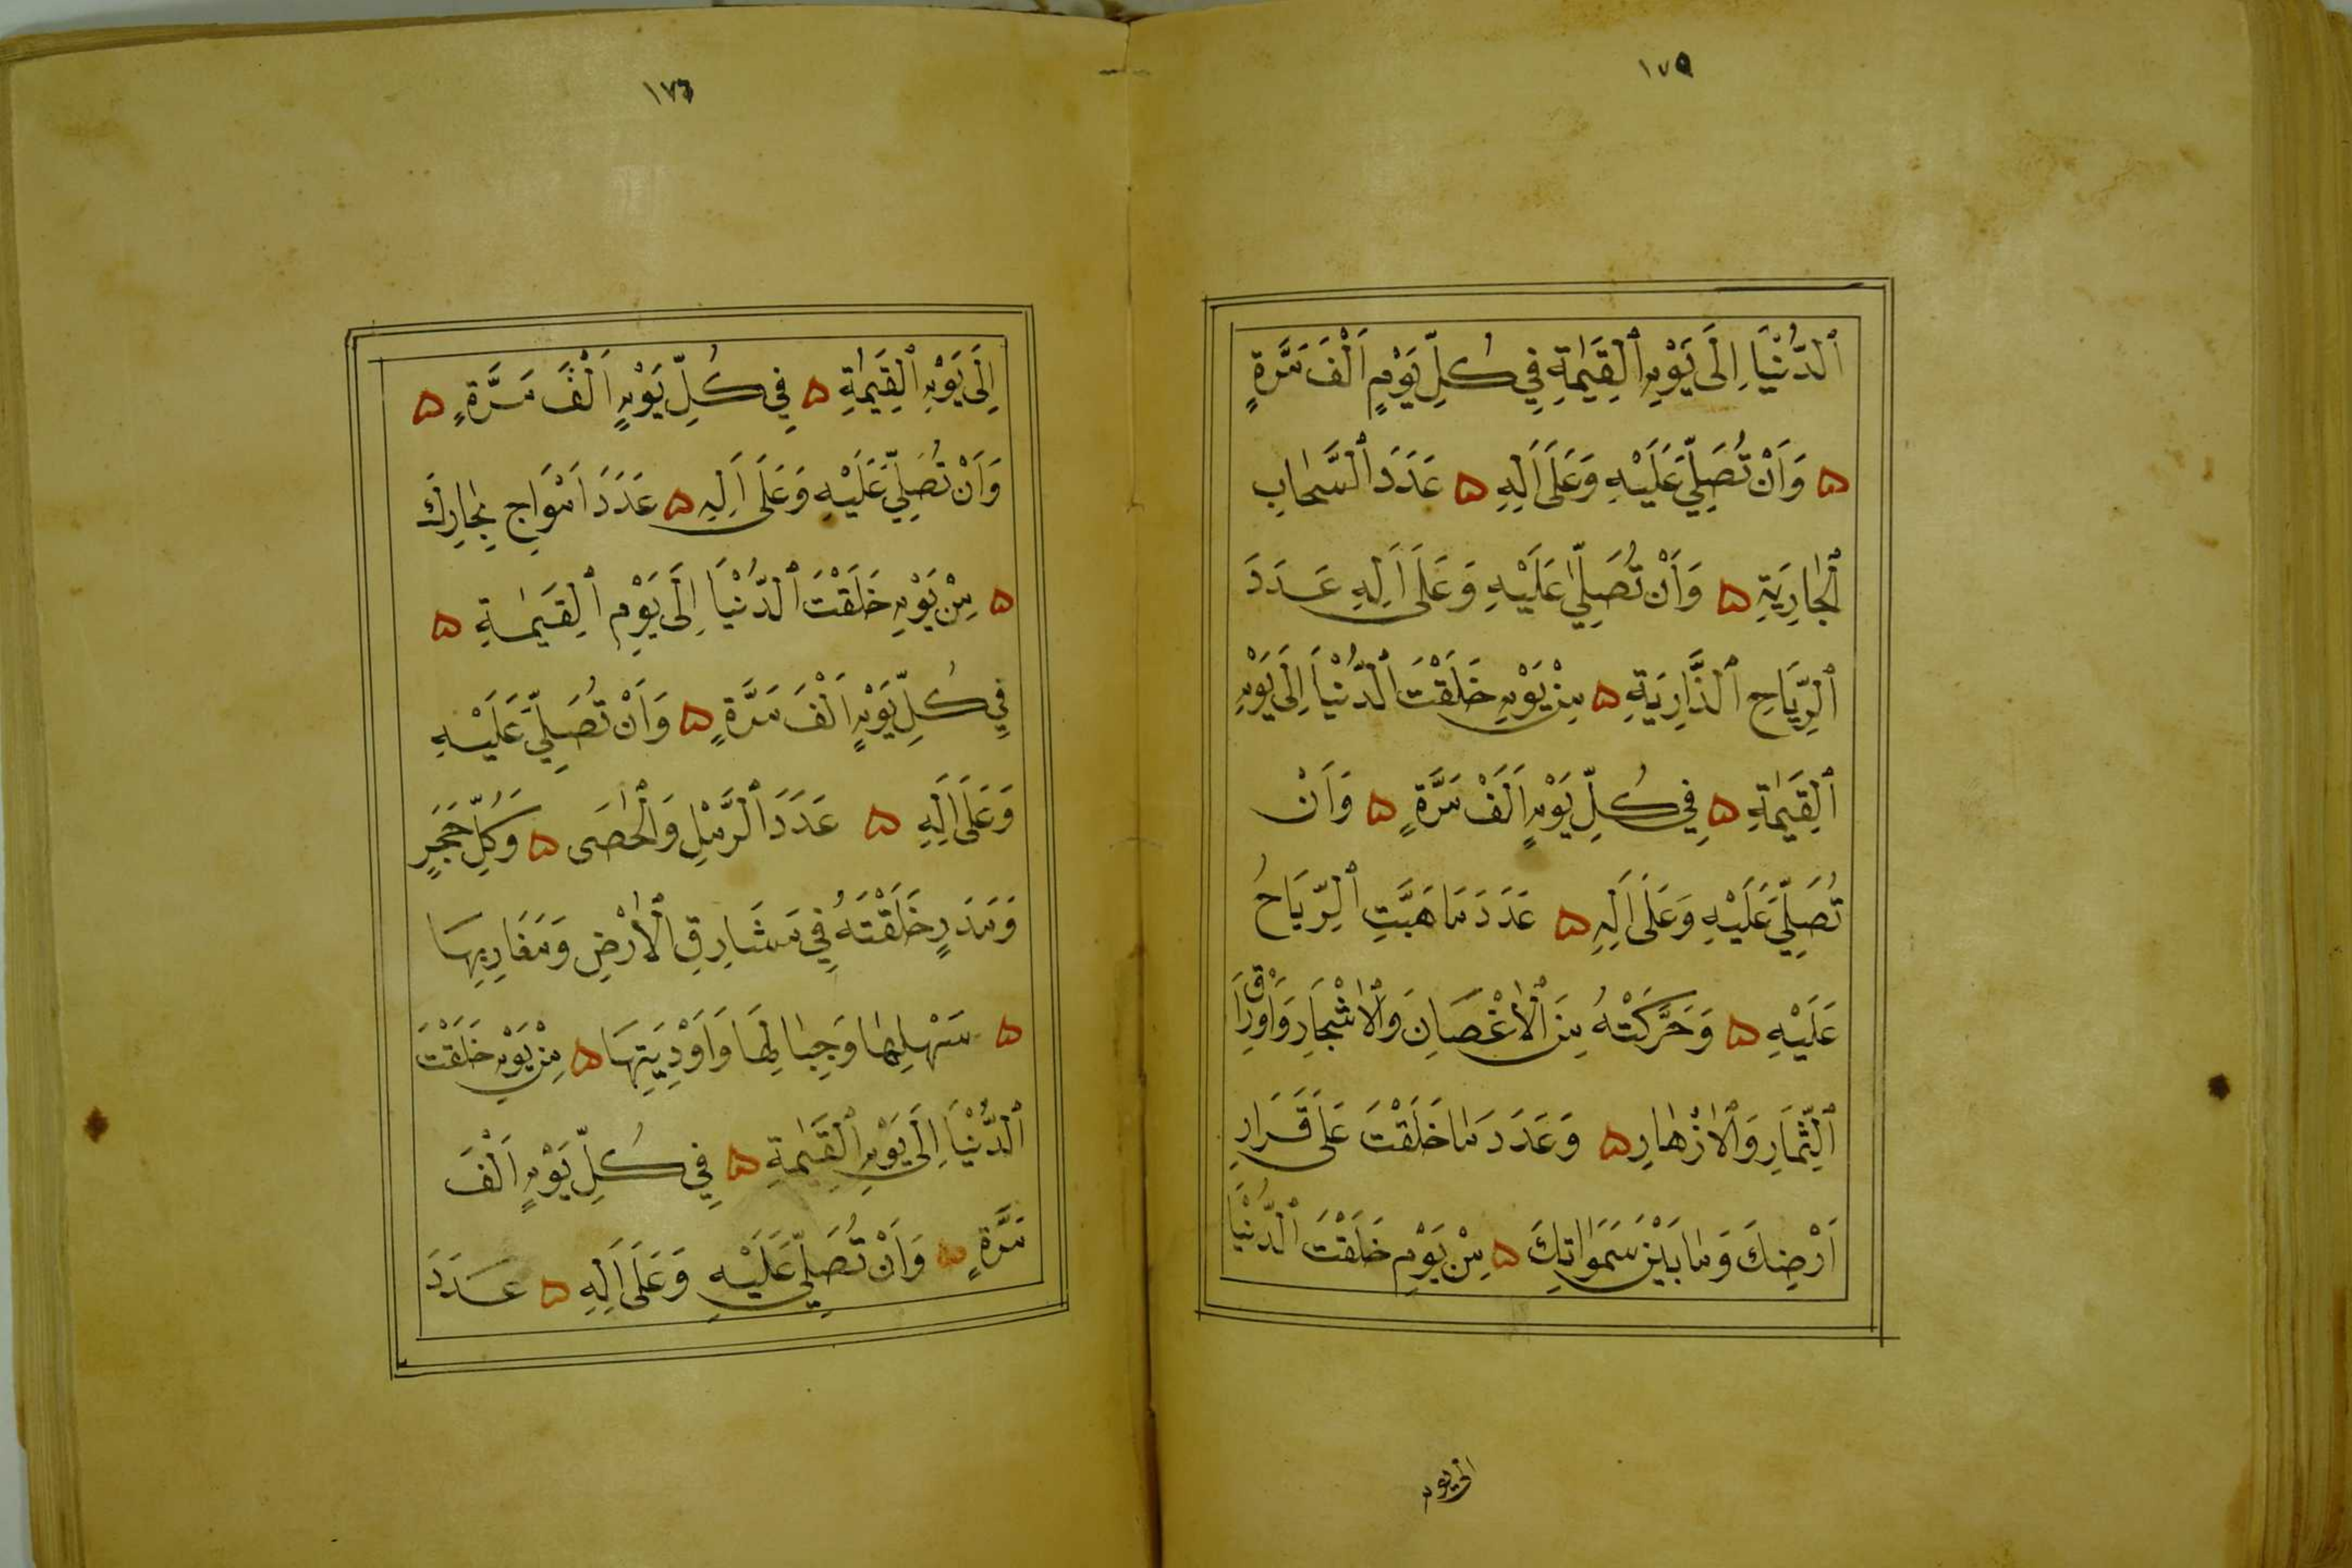 ١٧٥
ٱلدُّنْيَا اِلَى يَوْمِ ٱلْقِيَمٰةِ فِي كُلِّ يَوْمٍ اَلْفَ مَرَّةٍ
ه وَاَنْ تُصَلِّيَ عَلَيْهِ وَعَلَى اَلِهِ ه عَدَدَ ٱلسَّحَابِ
ٱلْجَارِيَةِ ه وَاَنْ تُصَلِّيَ عَلَيْهِ وَعَلَى اَلِهِ عَدَدَ
ٱلرِّيَاحِ ٱلذَّارِيَةِ ه مِنْ يَوْمِ خَلَقْتَ ٱلدُّنْيَا اِلَى يَوْمِ
ٱلْقِيَمٰةِ ه فِي كُلِّ يَوْمٍ اَلَفْ مَرَّةٍ ه وَاَنْ
تُصَلِّيَ عَلَيْهِ وَعَلَى اَلِهِ ه عَدَدَ مَا هَبَّتِ ٱلرِّيَاحُ
عَلَيْهِ ه وَحَرَّكَتْهُ مِنَ ٱلْاَغْصَانِ وَٱلْاَشْجَارِ وَاَوْرَاقِ
ٱلثِّمَارِ وَٱلْاَزْهَارِ ه وَعَدَدَ مَا خَلَقْتَ عَلَى قَرَارِ
اَرْضِكَ وَمَا بَيْنَ سَمَوَاتِكَ ه مِنْ يَوْمِ خَلَقْتَ ٱلدُّنْيَا
الى يوم
١٧٦
اِلَى يَوْمِ ٱلْقِيَمٰةِ ه فِي كُلِّ يَوْمٍ اَلْفَ مَرَّةٍ ه
وَاَنْ تُصَلِّيَ عَلَيْهِ وَعَلَى اَلِهِ ه عَدَدَ اَمْوَاجِ بِحَارِكَ
ه مِنْ يَوْمِ خَلَقْتَ ٱلدُّنْيَا اِلَى يَوْمِ ٱلْقِيَمٰةِ ه
فِي كُلِّ يَوْمٍ اَلْفَ مَرَّةٍ ه وَاَنْ تُصَلِّيَ عَلَيْهِ
وَعَلَى اَلِهِ ه عَدَدَ ٱلرَّمْلِ وَٱلْحَصَى ه وَكُلِّ حَجَرٍ
وَمَدَرٍ خَلَقْتَهُ فِي مَشَارِقِ ٱلْاَرْضِ وَمَغَارِبِهَا
ه سَهْلِهَا وَجِبَالِهَا وَاَوْدِيَتِهَا ه مِنْ يَوْمِ خَلَقْتَ
ٱلدُّنْيَا اِلَى يَوْمِ ٱلْقِيَمٰةِ ه فِي كُلِّ يَوْمٍ اَلْفَ
مَرَّةٍ ه وَاَنْ تُصَلِّيَ عَلَيْهِ وَعَلَى اَلِهِ ه عَدَدَ